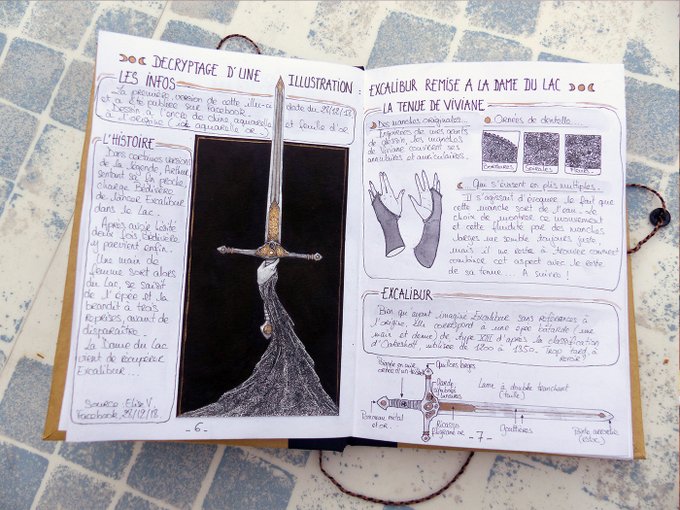 DECRYPTAGE D'UNE ILLUSTRATION :
LES INFOS
La première version de cette illu- date du 28/12/18
et a été publiée sur Facebook.
Dessin à l'encre de chine, aquarelle et feuille d'or.
à l'origine ( aquarelle or )
L'HISTOIRE
Dans certaines versions
de la légende, Arthur,
sentant sa fin proche,
charge Bédivère
de lancer Excalibur
dans le lac.
Après avoir hésité
deux fois Bédivère
y parvient enfin.
Une main de
femme sort alors
du lac, se saisit
de l'épée et la
brandit à trois
reprises, avant de
disparaître.
La Dame du Lac
vient de récupérer
Excalibur...
Source : Elise V.
Facebook, 28/12/18
- 6 -
EXCALIBUR REMISE A LA DAME DU LAC
LA TENUE DE VIVIANE
Des manches originales...
Inspirées de mes gants
de dessin, les manches
de Viviane couvrent ses
annulaires et auriculaires.
Ornées de dentelle...
Ecritures Spirales Fleurs
Qui s'évasent en plis multiples.
Il s'agissait d'évoquer le fait que
cette manche sort de l'eau. Le
choix de montrer ce mouvement
et cette fluidité par des manches
larges me semble toujours juste,
mais il me reste à trouver comment
combiner cet aspect avec le reste
de sa tenue... A suivre !
EXCALIBUR
Bien qu'ayant imaginé Excalibur sans références à
l'origine, elle correspond à une épée bâtarde (une
main et demie) de type XIII d'après la classification
d'Oakeshott, utilisée de 1200 à 1350. Trop tard, à
revoir !
Quillons
Lame à double tranchant
(taille)
Pommeau métal
et or
Ricasso
Gouttières
Pointe acérée
(estoc)
- 7 -